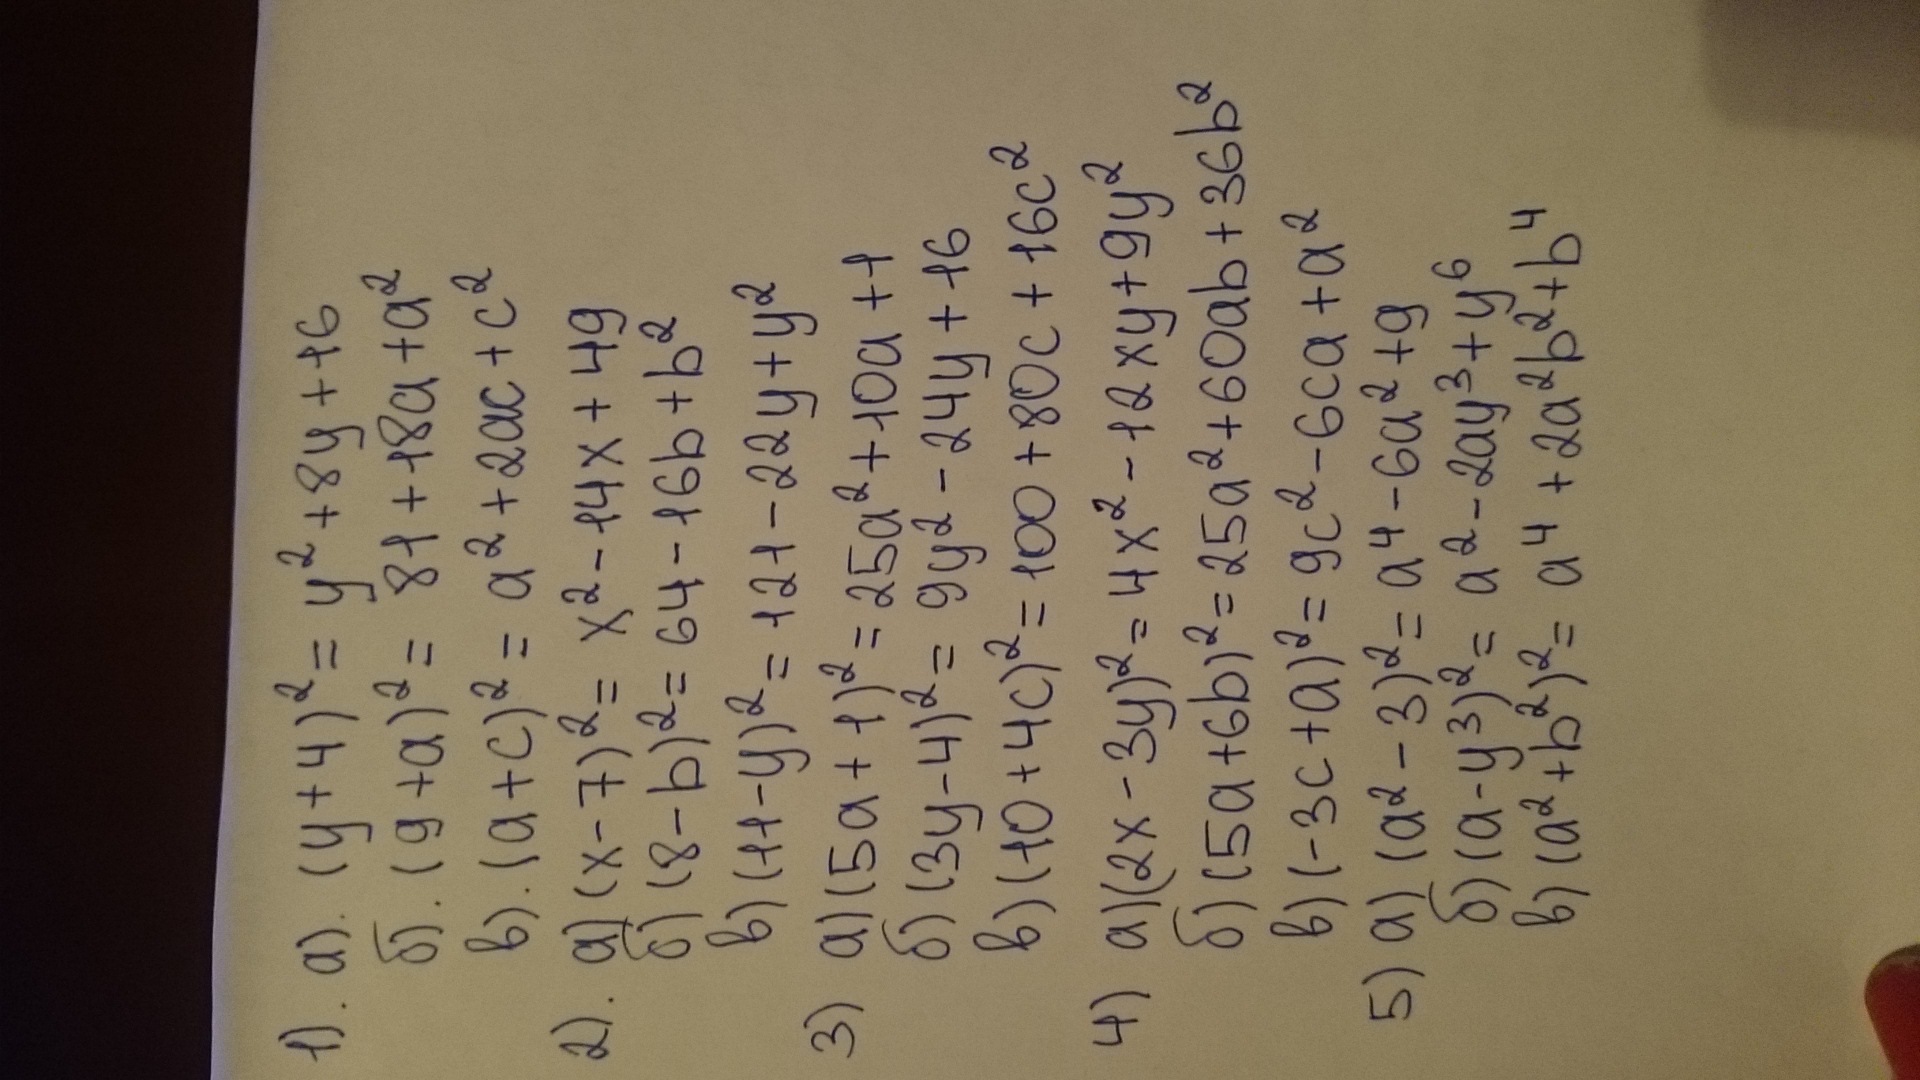 1). а). (y+4)² = y²+8y+16
б). (9+a)² = 81+18a+a²
в). (a+c)² = a²+2ac+c²
2). а) (x-7)² = x²-14x+49
б) (8-b)² = 64-16b+b²
в) (11-y)² = 121-22y+y²
3) а) (5a+1)² = 25a²+10a+1
б) (3y-4)² = 9y²-24y+16
в) (10+4c)² = 100+80c+16c²
4) а) (2x-3y)² = 4x²-12xy+9y²
б) (5a+6b)² = 25a²+60ab+36b²
в) (-3c+a)² = 9c²-6ca+a²
5) а) (a²-3)² = a⁴-6a²+9
б) (a-y³)² = a²-2ay³+y⁶
в) (a²+b²)² = a⁴+2a²b²+b⁴